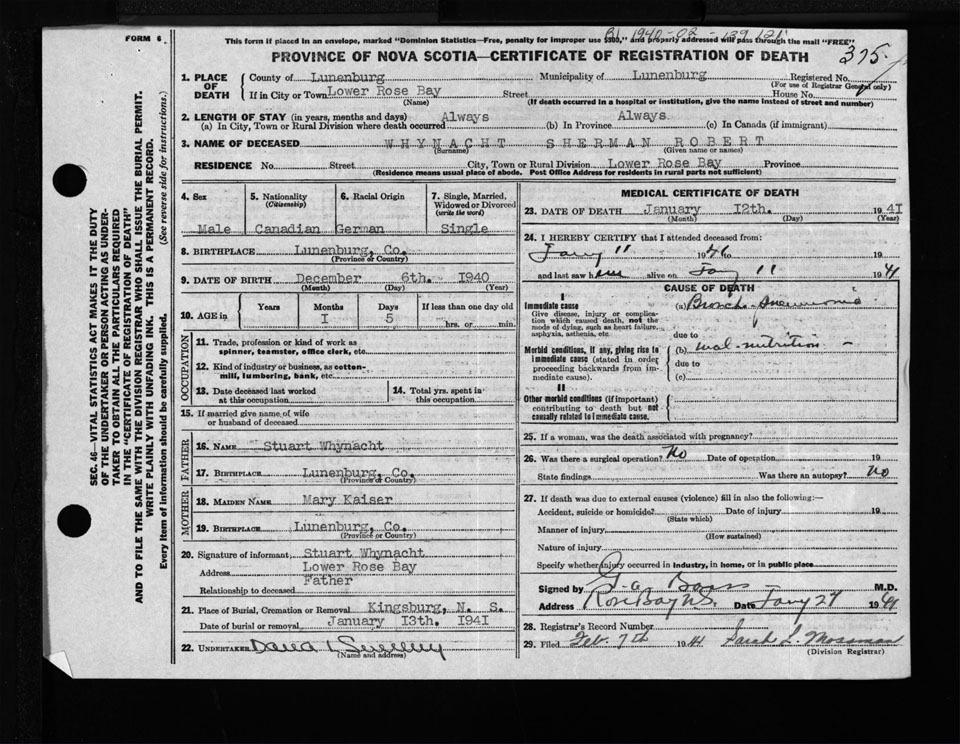 FORM 6.
This form if placed in an envelope, marked "Dominion Statistics—Free, penalty for improper use $300," and properly addressed will pass through the mail "FREE"
1940-02-139121
375
PROVINCE OF NOVA SCOTIA—CERTIFICATE OF REGISTRATION OF DEATH
1. PLACE OF DEATH
County of Lunenburg Municipality of Lunenburg Registered No.
(For use of Registrar General only)
If in City or Town Lower Rose Bay Street House No.
(Name) (If death occurred in a hospital or institution, give the name instead of street and number)
2. LENGTH OF STAY (in years, months and days)
(a) In City, Town or Rural Division where death occurred Always (b) In Province Always (c) In Canada (if immigrant)
3. NAME OF DECEASED WHYNACHT SHERMAN ROBERT
(Surname) (Given name or names)
RESIDENCE No. Street City, Town or Rural Division Lower Rose Bay Province
(Residence means usual place of abode. Post Office Address for residents in rural parts not sufficient)
4. Sex
Male
5. Nationality
(Citizenship)
Canadian
6. Racial Origin
German
7. Single, Married, Widowed or Divorced
(write the word)
Single
8. BIRTHPLACE Lunenburg, Co.
(Province or Country)
9. DATE OF BIRTH December 6th. 1940
(Month) (Day) (Year)
10. AGE in
Years Months Days If less than one day old
1 5 hrs. or min.
OCCUPATION
11. Trade, profession or kind of work as
spinner, teamster, office clerk, etc.
12. Kind of industry or business, as cotton-
mill, lumbering, bank, etc.
13. Date deceased last worked
at this occupation
14. Total yrs. spent in
this occupation
15. If married give name of wife
or husband of deceased
FATHER
16. NAME Stuart Whynacht
17. BIRTHPLACE Lunenburg, Co.
(Province or Country)
MOTHER
18. MAIDEN NAME Mary Kaiser
19. BIRTHPLACE Lunenburg, Co.
(Province or Country)
20. Signature of informant Stuart Whynacht
Address Lower Rose Bay
Relationship to deceased Father
21. Place of Burial, Cremation or Removal Kingsburg, N. S.
Date of burial or removal January 13th. 1941
22. UNDERTAKER
(Name and address)
MEDICAL CERTIFICATE OF DEATH
23. DATE OF DEATH January 12th. 1941
(Month) (Day) (Year)
24. I HEREBY CERTIFY that I attended deceased from:
Jany 11 19 to
and last saw him alive on Jany 11 1941
CAUSE OF DEATH
I
Immediate cause
Give disease, injury or complica-
tion which caused death, not the
mode of dying, such as heart failure,
asphyxia, asthenia, etc.
(a) Broncho-pneumonia
due to
Morbid conditions, if any, giving rise to
immediate cause (stated in order
proceeding backwards from im-
mediate cause).
(b) mal-nutrition
due to
(c)
II
Other morbid conditions (if important)
contributing to death but not
causally related to immediate cause.
25. If a woman, was the death associated with pregnancy?
26. Was there a surgical operation? No Date of operation 19
State findings Was there an autopsy? No
27. If death was due to external causes (violence) fill in also the following:—
Accident, suicide or homicide? Date of injury 19
(State which)
Manner of injury
(How sustained)
Nature of injury
Specify whether injury occurred in industry, in home, or in public place
Signed by M.D.
Address Rose Bay N.S. Date Jany 27 1941
28. Registrar's Record Number
29. Filed Feb. 7th 1941 Sarah L. Mossman
(Division Registrar)
SEC. 46—VITAL STATISTICS ACT MAKES IT THE DUTY
OF THE UNDERTAKER OR PERSON ACTING AS UNDER-
TAKER TO OBTAIN ALL THE PARTICULARS REQUIRED
IN THE "CERTIFICATE OF REGISTRATION OF DEATH"
AND TO FILE THE SAME WITH THE DIVISION REGISTRAR WHO SHALL ISSUE THE BURIAL PERMIT.
WRITE PLAINLY WITH UNFADING INK. THIS IS A PERMANENT RECORD.
Every item of information should be carefully supplied. (See reverse side for instructions.)